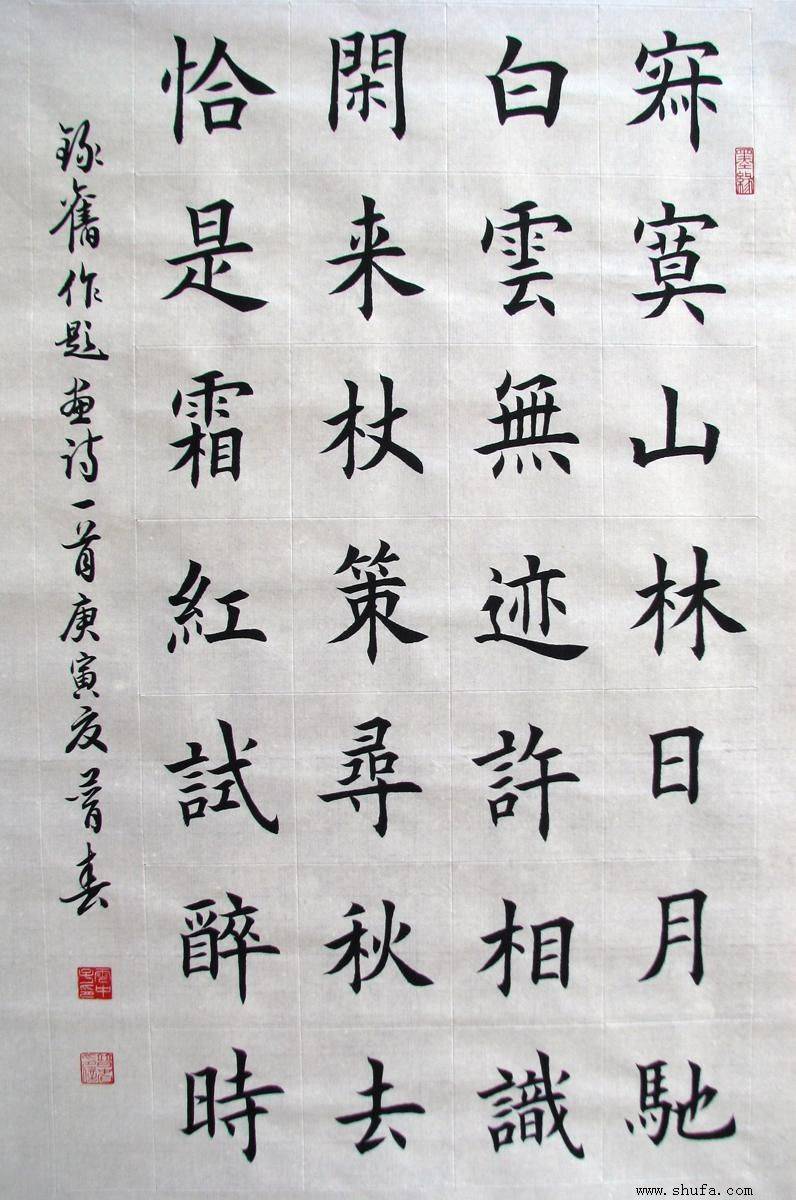 寂寞山林日月馳
白雲無迹許相識
閑来杖策尋秋去
恰是霜紅試醉時
錄舊作題画诗一首庚寅夏菁春
墨緣
www.shufa.com